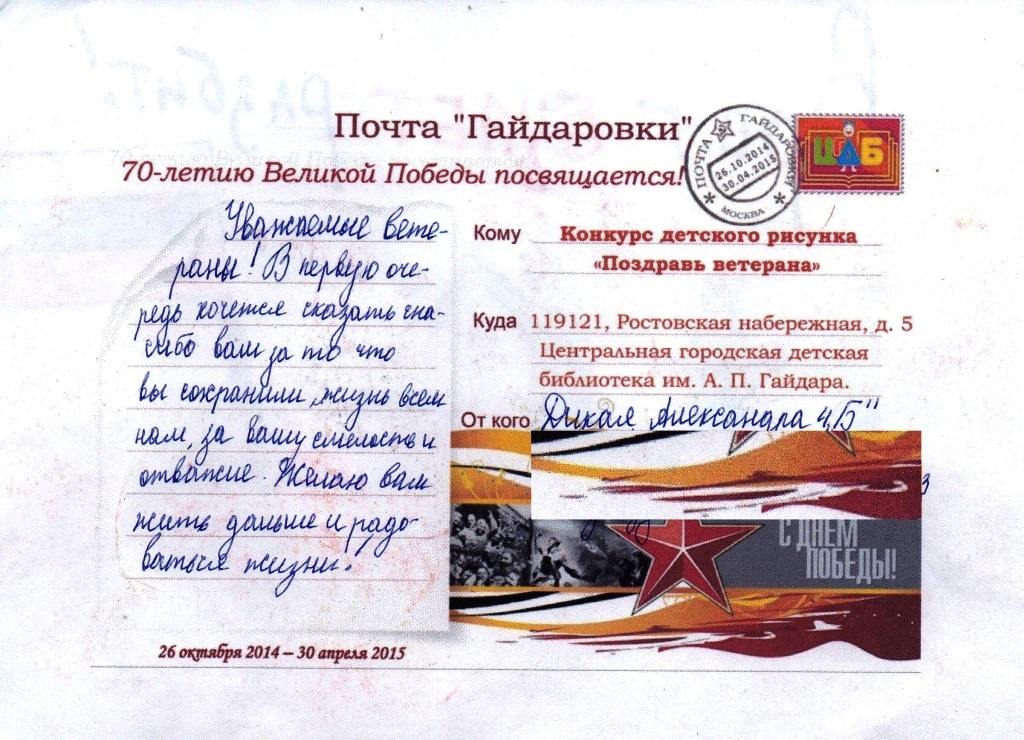 Почта "Гайдаровки"
70-летию Великой Победы посвящается!
ПОЧТА ГАЙДАРОВКИ
26.10.2014
30.04.2015
МОСКВА
ЦДБ
Уважаемые вете-
раны! В первую оче-
редь хочется сказать спа-
сибо вам за то что
вы сохранили жизнь всем
нам, за вашу смелость и
отважие. Желаю вам
жить дальше и радо-
ваться жизни.
26 октября 2014 – 30 апреля 2015
Кому Конкурс детского рисунка
«Поздравь ветерана»
Куда 119121, Ростовская набережная, д. 5
Центральная городская детская
библиотека им. А. П. Гайдара.
От кого Дикая Александра 4„Б"
С ДНЕМ
ПОБЕДЫ!